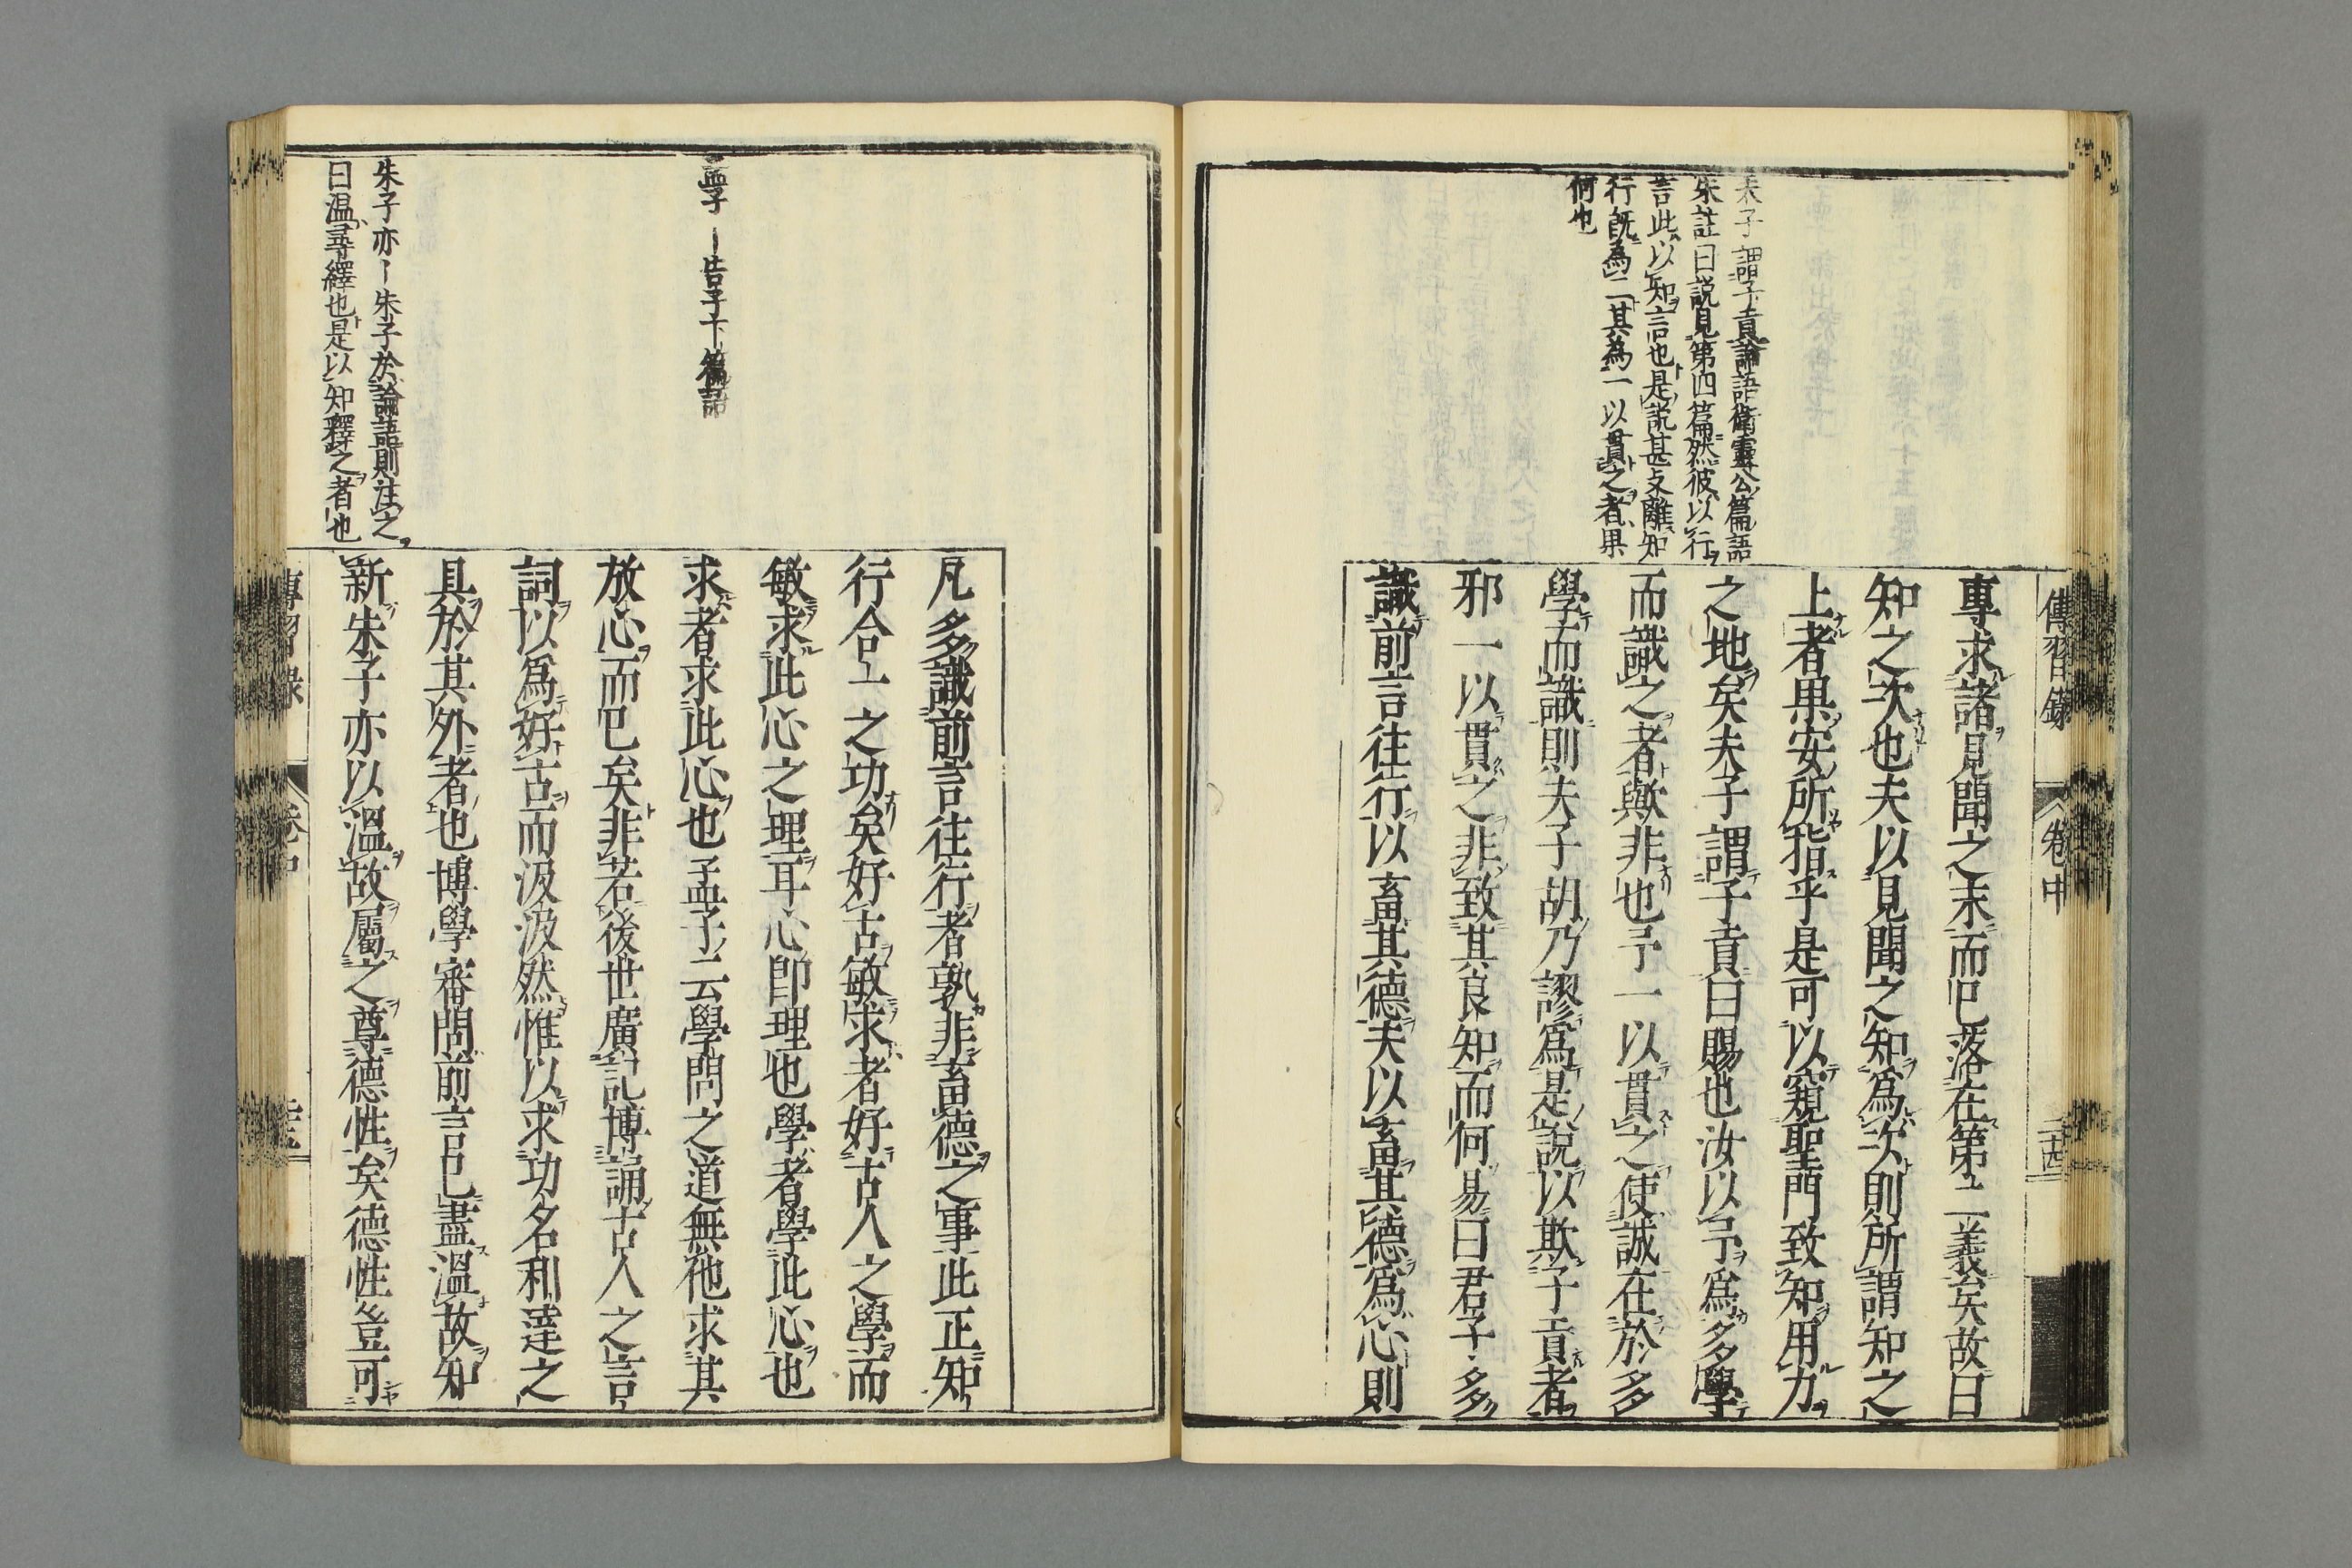 傳習錄
卷中
三十四
夫子謂子貢論語衛靈公篇語
朱註曰説見第四篇然彼以行
言此以知言也是説甚支離知
行既爲二其爲一以貫之者果
何也
專求諸見聞之末而已落在第二義矣故曰
知之次也夫以見聞之知爲次則所謂知之
上者果安所指乎是可以窺聖門致知用力
之地矣夫子謂子貢曰賜也汝以予爲多學
而識之者歟非也予一以貫之使誠在於多
學而識則夫子胡乃謬爲是說以欺子貢者
邪一以貫之非致其良知而何易曰君子多
識前言往行以畜其德夫以畜其德爲心則
學ー告子下篇語
朱子亦ー朱子於論語則注之
曰溫尋繹也是以知釋之者也
凡多識前言往行者孰非畜德之事此正知
行合一之功矣好古敏求者好古人之學而
敏求此心之理耳心卽理也學者學此心也
求者求此心也孟子云學問之道無他求其
放心而已矣非若後世廣記博誦古人之言
詞以爲好古而汲汲然惟以求功名利達之
具於其外者也博學審問前言已盡溫故知
新朱子亦以溫故屬之尊德性矣德性豈可
傳習錄
卷中